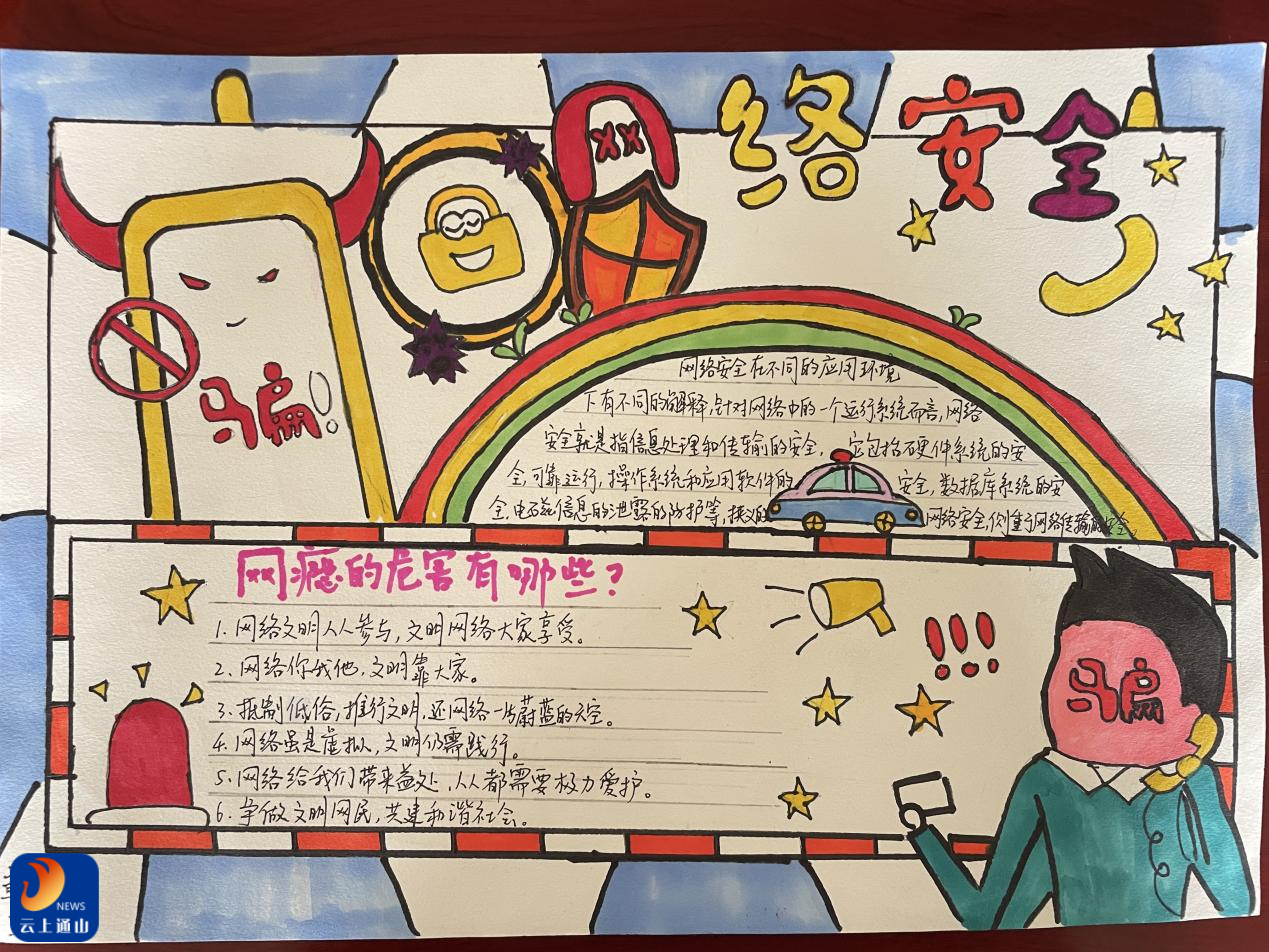 网络安全
骗!
网络安全在不同的应用环境
下有不同的解释,针对网络中的一个运行系统而言,网络
安全就是指信息处理和传输的安全,它包括硬件系统的安
全,可靠运行,操作系统和应用软件的安全,数据库系统的安
全,电磁信息的泄露的防护等,狭义的网络安全,侧重于网络传输的安全。
网瘾的危害有哪些?
1.网络文明人人参与,文明网络大家享受。
2.网络你我他,文明靠大家。
3.抵制低俗,推行文明,还网络一片蔚蓝的天空。
4.网络虽是虚拟,文明仍需践行。
5.网络给我们带来益处,人人都需要极力爱护。
6.争做文明网民,共建和谐社会。
!!!
骗
NEWS
云上通山